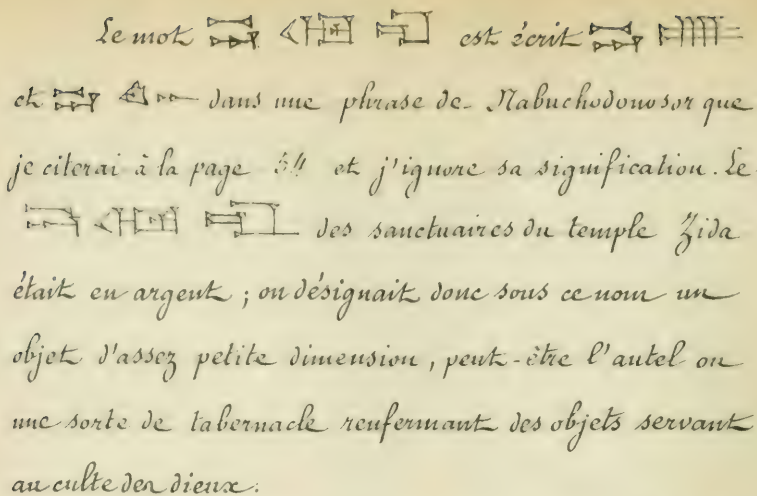 Le mot est écrit
et dans une phrase de Nabuchodonosor que
je citerai à la page 54 et j'ignore sa signification. Le
des sanctuaires du temple Zida
était en argent ; on désignait donc sous ce nom un
objet d'assez petite dimension, peut-être l'autel ou
une sorte de tabernacle renfermant des objets servant
au culte des dieux.